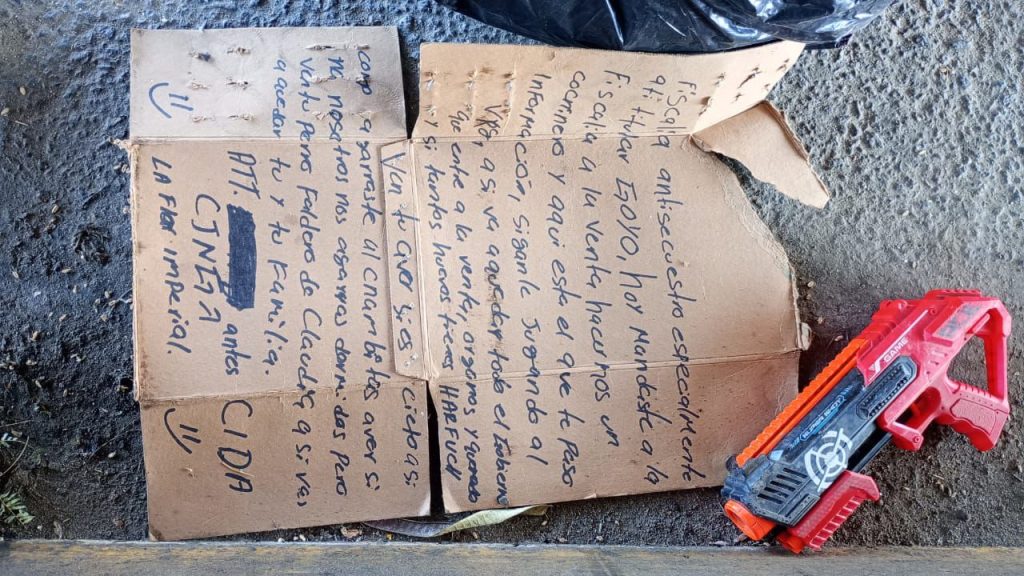 fiscalia antisecuestro especialmente
ati titular GOYO, hoy Mandaste a la
fiscalia a la venta hacernos un
cocinero y aqui esta el que te Paso
Informacion, sigan le Jugando al
a si va a quedar todo el
que entre a la venta, organos y quemado
y si tantos huevos tienes HARFUCH
Ven tu aver si es cierto asi
como agarraste al chambitos aver si
nosotros nos agarras dormidos Pero
ven tu perro faldero de Claudia a si vas
a quedar tu y tu Familia.
ATT. antes CIDA
LA Flor imperial.
GAME